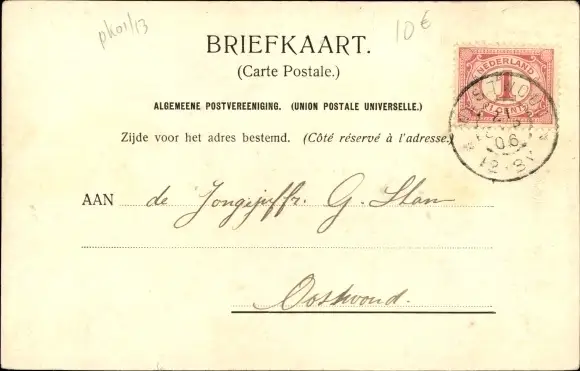 pk01/13
10 €
BRIEFKAART.
(Carte Postale.)
NEDERLAND
1
CENT
ALGEMEENE POSTVEREENIGING. (UNION POSTALE UNIVERSELLE.)
Zijde voor het adres bestemd. (Côté réservé à l'adresse.)
06
12-8V
AAN de Jongejuffr. G. Stam
Oostwoud.